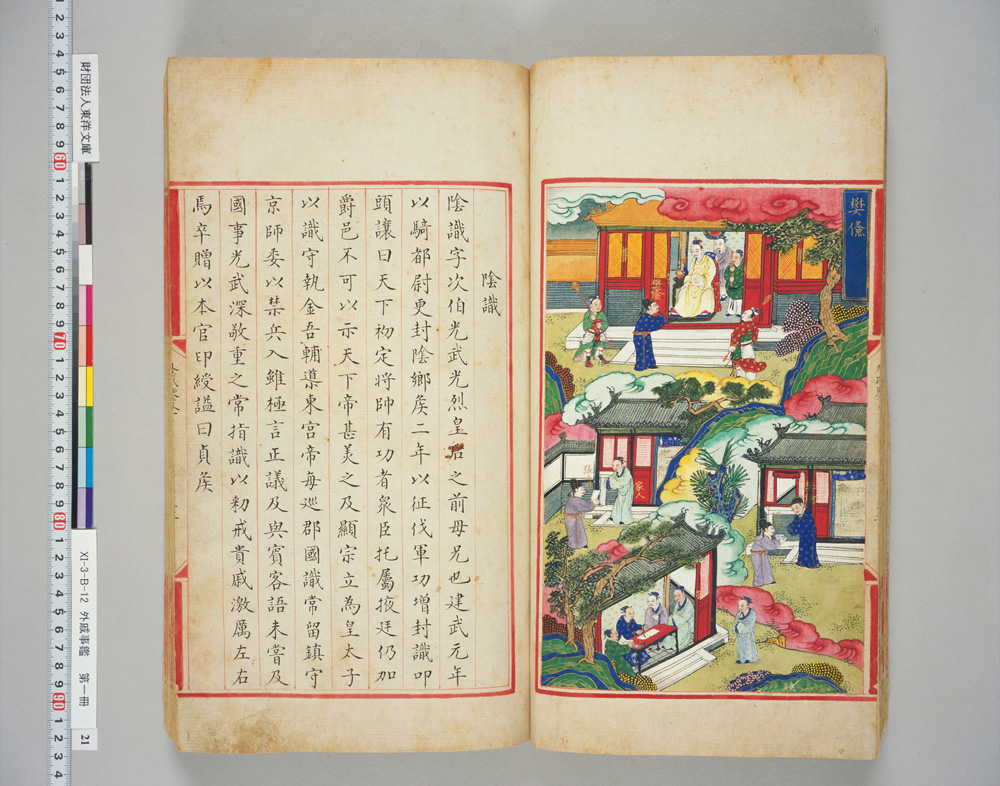 樊儵
樊儵
家人
張
陰識
陰識字次伯光武光烈皇后之前母兄也建武元年
以騎都尉更封陰鄉矦二年以征伐軍功增封識叩
頭讓曰天下初定將帥有功者衆臣托屬掖廷仍加
爵邑不可以示天下帝甚美之及顯宗立為皇太子
以識守執金吾輔導東宮帝每廵郡國識常留鎮守
京師委以禁兵入雖極言正議及與賓客語未嘗及
國事光武深敬重之常指識以勑戒貴戚激厲左右
焉卒贈以本官印綬謚曰貞矦
財団法人東洋文庫
XI-3-B-12 外戚事鑑 第一冊
21